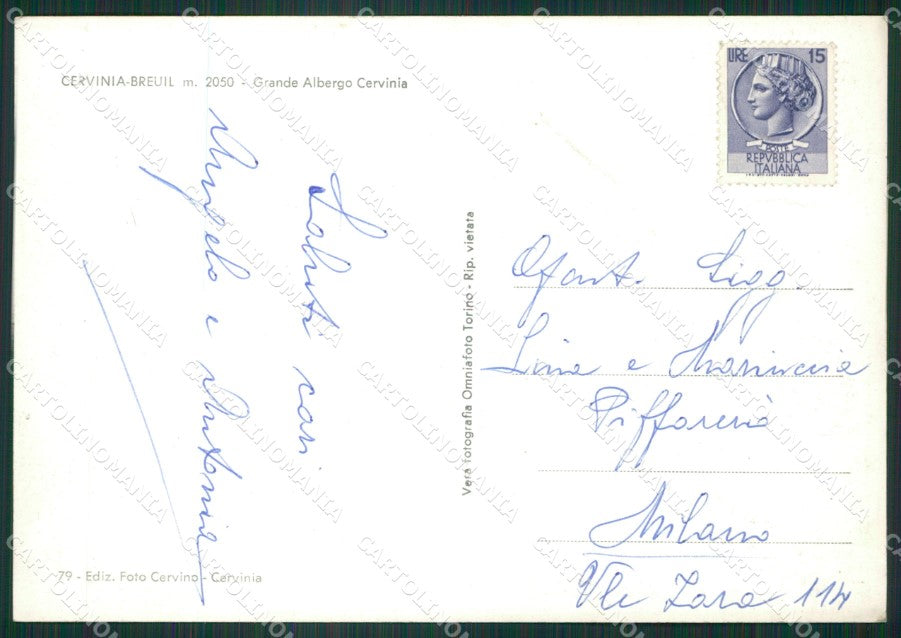 CERVINIA-BREUIL m. 2050 - Grande Albergo Cervinia
Saluti cari
Angelo e Antonia
79 - Ediz. Foto Cervino - Cervinia
Vera fotografia Omniafoto Torino - Rip. vietata
LIRE 15
POSTE
REPVBBLICA
ITALIANA
Sigg.
Lina e
Milano
Vle Zara 114
CARTOLINOMANIA